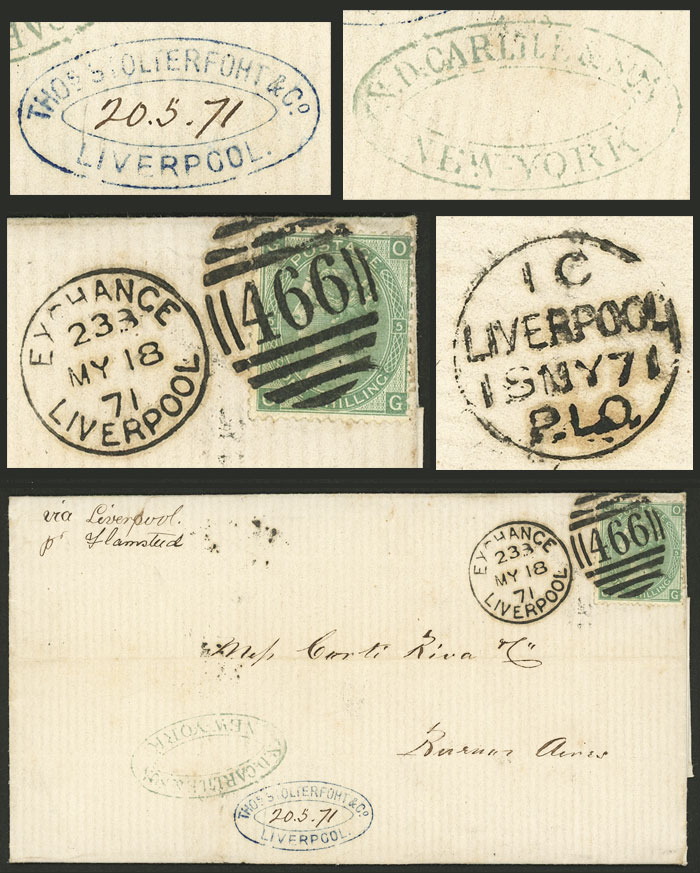 THOS STOLTERFOHT & Co
20.5.71
LIVERPOOL.
.D. CARLILE & SON
NEW YORK
EXCHANGE
233
MY 18
71
LIVERPOOL
466
G O
POSTAGE
5
SHILLING
G
1 C
LIVERPOOL
18 MY 71
P.L.O.
via Liverpool.
pr Flamsteed
EXCHANGE
233
MY 18
71
LIVERPOOL
466
O
5
SHILLING
G
Mess Corti Riva & Co
Buenos Aires
NEW YORK
.D. CARLILE & SON
THOS STOLTERFOHT & Co
20.5.71
LIVERPOOL.